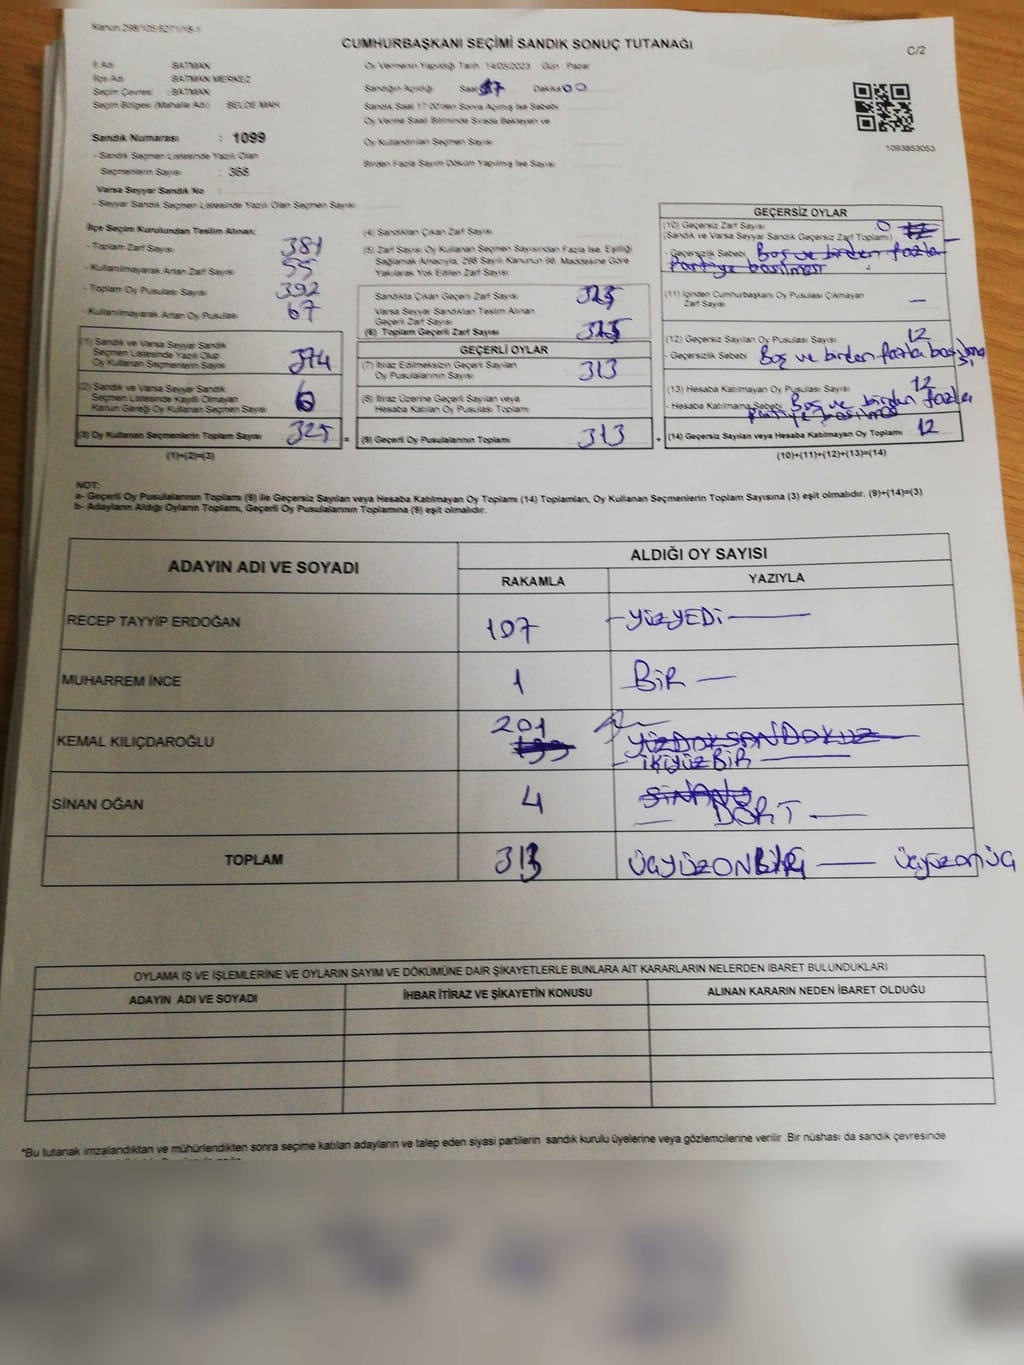 Kanun:298/105/6271/16-1
CUMHURBAŞKANI SEÇİMİ SANDIK SONUÇ TUTANAĞI
C/2
İl Adı BATMAN
İlçe Adı BATMAN MERKEZ
Seçim Çevresi : BATMAN
Seçim Bölgesi (Mahalle Adı) BELDE MAH.
Sandık Numarası : 1099
- Sandık Seçmen Listesinde Yazılı Olan
Seçmenlerin Sayısı : 368
Varsa Seyyar Sandık No
- Seyyar Sandık Seçmen Listesinde Yazılı Olan Seçmen Sayısı
Oy Vermenin Yapıldığı Tarih: 14/05/2023 Gün: Pazar
Sandığın Açıldığı Saat 17 Dakika 00
Sandık Saat 17:00'den Sonra Açılmış İse Sebebi
Oy Verme Saati Bitiminde Sırada Bekleyen ve
Oy Kullandırılan Seçmen Sayısı
Birden Fazla Sayım Döküm Yapılmış İse Sayısı
1093853053
İlçe Seçim Kurulundan Teslim Alınan:
- Toplam Zarf Sayısı 381
- Kullanılmayarak Artan Zarf Sayısı 55
- Toplam Oy Pusulası Sayısı 392
- Kullanılmayarak Artan Oy Pusulası 67
(1) Sandık ve Varsa Seyyar Sandık
Seçmen Listesinde Yazılı Olup
Oy Kullanan Seçmenlerin Sayısı
(2) Sandık ve Varsa Seyyar Sandık
Seçmen Listesinde Kayıtlı Olmayan
Kanun Gereği Oy Kullanan Seçmen Sayısı
(3) Oy Kullanan Seçmenlerin Toplam Sayısı 325 =
(1)+(2)=(3)
(4) Sandıktan Çıkan Zarf Sayısı
(5) Zarf Sayısı Oy Kullanan Seçmen Sayısından Fazla İse, Eşitliği
Sağlamak Amacıyla, 298 Sayılı Kanunun 98. Maddesine Göre
Yakılarak Yok Edilen Zarf Sayısı
Sandıkta Çıkan Geçerli Zarf Sayısı 325
Varsa Seyyar Sandıktan Teslim Alınan
Geçerli Zarf Sayısı
(6) Toplam Geçerli Zarf Sayısı 325
GEÇERLİ OYLAR
(7) İtiraz Edilmeksizin Geçerli Sayılan
Oy Pusulalarının Sayısı 313
(8) İtiraz Üzerine Geçerli Sayılan veya
Hesaba Katılan Oy Pusulası Toplamı
(9) Geçerli Oy Pusulalarının Toplamı 313 +
GEÇERSİZ OYLAR
(10) Geçersiz Zarf Sayısı 0
(Sandık ve Varsa Seyyar Sandık Geçersiz Zarf Toplamı) 12
- Geçersizlik Sebebi Boş ve birden fazla
Partiye basılması
(11) İçinden Cumhurbaşkanı Oy Pusulası Çıkmayan
Zarf Sayısı —
(12) Geçersiz Sayılan Oy Pusulası Sayısı 12
- Geçersizlik Sebebi Boş ve birden fazla basılması
(13) Hesaba Katılmayan Oy Pusulası Sayısı 12
- Hesaba Katılmama Sebebi Boş ve birden fazla
Partiye basılması
(14) Geçersiz Sayılan veya Hesaba Katılmayan Oy Toplamı 12
(10)+(11)+(12)+(13)=(14)
NOT:
a- Geçerli Oy Pusulalarının Toplamı (9) ile Geçersiz Sayılan veya Hesaba Katılmayan Oy Toplamı (14) Toplamları, Oy Kullanan Seçmenlerin Toplam Sayısına (3) eşit olmalıdır. (9)+(14)=(3)
b- Adayların Aldığı Oyların Toplamı, Geçerli Oy Pusulalarının Toplamına (9) eşit olmalıdır.
ADAYIN ADI VE SOYADI ALDIĞI OY SAYISI
RAKAMLA YAZIYLA
RECEP TAYYİP ERDOĞAN 107 YÜZYEDİ
MUHARREM İNCE 1 BİR
KEMAL KILIÇDAROĞLU 201 YÜZDOKSANDOKUZ
199 İKİYÜZBİR
SİNAN OĞAN 4 SİNAN
DÖRT
TOPLAM 313 ÜÇYÜZON ÜÇYÜZONÜÇ
OYLAMA İŞ VE İŞLEMLERİNE VE OYLARIN SAYIM VE DÖKÜMÜNE DAİR ŞİKAYETLERLE BUNLARA AİT KARARLARIN NELERDEN İBARET BULUNDUKLARI
ADAYIN ADI VE SOYADI İHBAR İTİRAZ VE ŞİKAYETİN KONUSU ALINAN KARARIN NEDEN İBARET OLDUĞU
*Bu tutanak imzalandıktan ve mühürlendikten sonra seçime katılan adayların ve talep eden siyasi partilerin sandık kurulu üyelerine veya gözlemcilerine verilir .Bir nüshası da sandık çevresinde